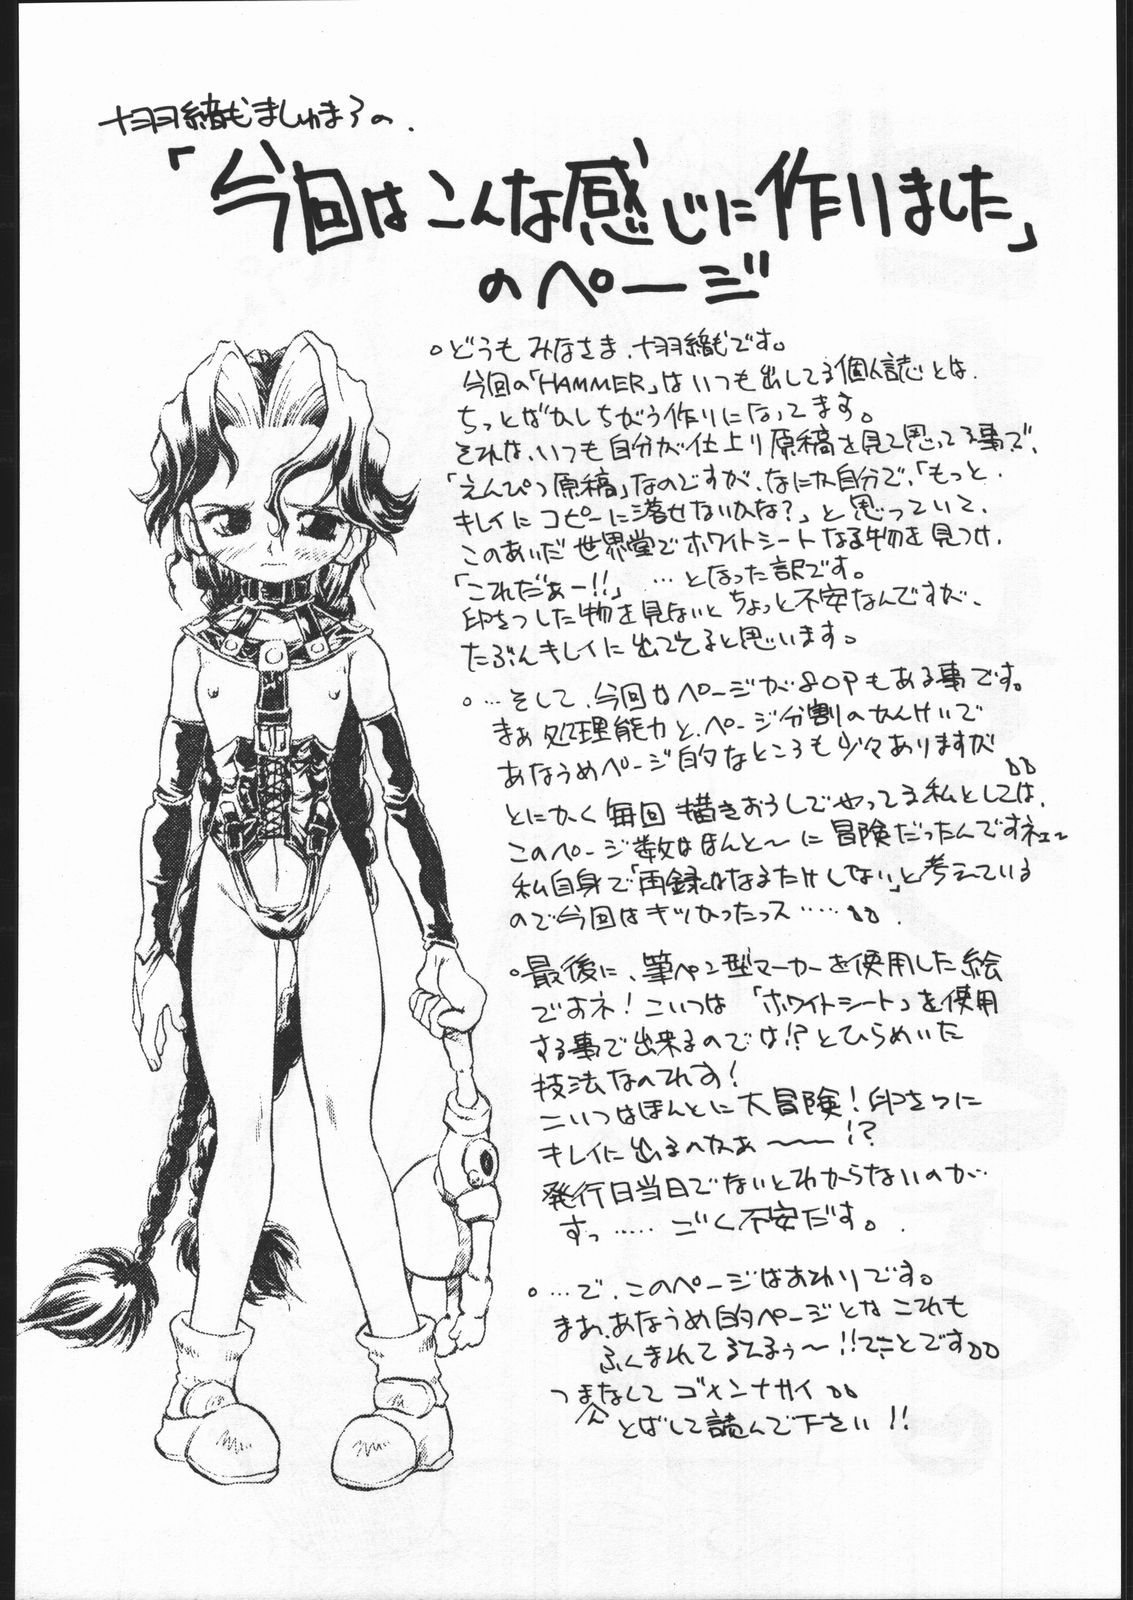 十羽織ましゅまろの、
「今回はこんな感じに作りました」
のページ
どうもみなさま、十羽織です。
今回の「HAMMER」はいつも出してる個人誌とは、
ちっとばかしちがう作りになってます。
それは、いつも自分が仕上り原稿を見て思ってる事で、
「えんぴつ原稿」なのですが、なにか自分で、「もっと
キレイにコピーに落せないかな?」と思っていて、
このあいだ世界堂でホワイトシートなる物を見つけ、
「これだぁー!!」…となった訳です。
印さつした物を見ないとちょっと不安なんですが、
たぶんキレイに出てると思います。
…そして、今回はページが80Pもある事です。
まぁ処理能力と、ページ分割のかんけいで
あなうめページ的なところも少々ありますが
とにかく毎回描きおろしでやってる私としては、
このページ数はほんと〜に冒険だったんですネェ〜
私自身で「再録はなるたけしない」と考えている
ので今回はキツかったっス……。
最後に、筆ペン型マーカーを使用した絵
ですネ!こいつは「ホワイトシート」を使用
する事で出来るのでは!?とひらめいた
技法なのです!
こいつはほんとに大冒険!印さつに
キレイに出るのかなぁ〜〜!?
発行日当日でないとわからないのが…
すっ……ごく不安だす。
…で、このページはおわりです。
まぁ、あなうめ的ページとは これも
ふくまれてるてるぅ〜!!てことです
つまんなくてゴメンナサイ
とばして読んで下さい!!